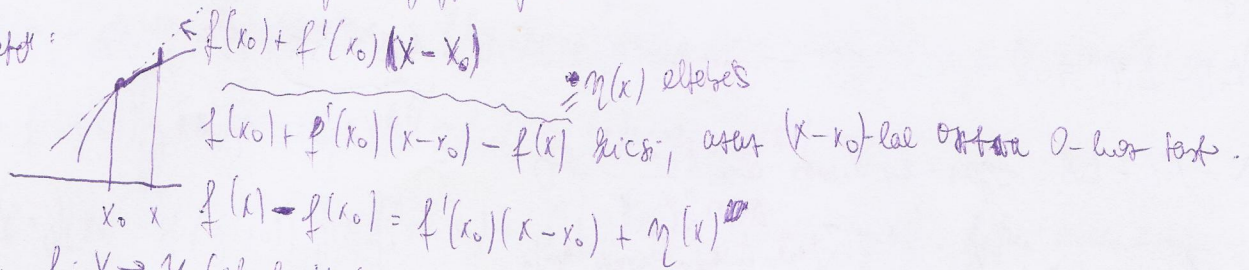 f(x₀) + f'(x₀)(x - x₀)
= η(x) eltérés
f(x₀) + f'(x₀)(x-x₀) - f(x) kicsi, azaz (x-x₀)-lal osztva 0-hoz tart.
x₀ x
f(x) - f(x₀) = f'(x₀)(x-x₀) + η(x)